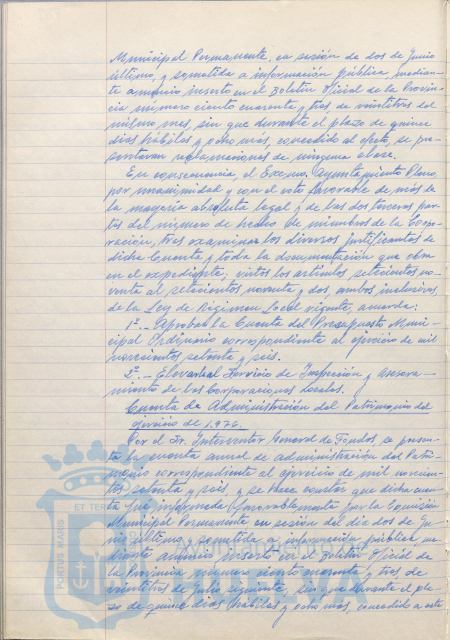 Municipal Permanente, en sesión de dos de Junio
último, y sometida a información pública, median-
te anuncio inserto en el Boletín Oficial de la Provin-
cia número ciento cuarenta y tres de veintitres del
mismo mes, sin que durante el plazo de quince
días hábiles y ocho más, concedido al efecto, se pre-
sentaran reclamaciones de ninguna clase.
En consecuencia, el Excmo. Ayuntamiento Pleno
por unanimidad y con el voto favorable de más de
la mayoría absoluta legal y de las dos terceras par-
tes del número de hecho de miembros de la Corpo-
ración, tras examinar los diversos justificantes de
dicha Cuenta y toda la documentación que obra
en el expediente; vistos los artículos setecientos no-
venta al setecientos noventa y dos, ambos inclusive,
de la Ley de Régimen Local vigente, acuerda:
1º.- Aprobar la Cuenta del Presupuesto Muni-
cipal Ordinario correspondiente al ejercicio de mil
novecientos setenta y seis.
2º.- Elevarla al Servicio de Inspección y Asesora-
miento de las Corporaciones Locales.
Cuenta de Administración del Patrimonio del
ejercicio de 1.976.
Por el Sr. Interventor General de Fondos, se presen-
ta la cuenta anual de administración del Patri-
monio correspondiente al ejercicio de mil novecien-
tos setenta y seis, y se hace constar que dicha cuen-
ta fue informada favorablemente por la Comisión
Municipal Permanente en sesión del día dos de Ju-
nio último y sometida a información pública me-
diante anuncio inserto en el Boletín Oficial de
la Provincia número ciento cuarenta y tres de
veintitres de Junio siguiente, sin que durante el pla-
zo de quince días hábiles y ocho más, concedido a este
ET TERRA
PORTUS MARIS